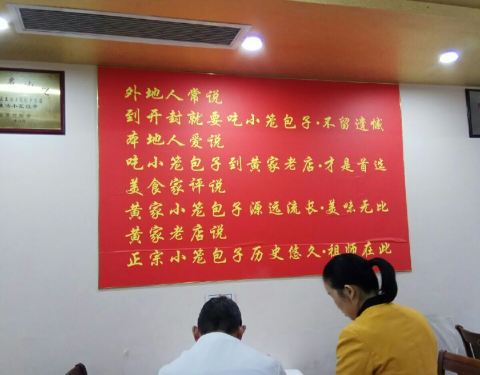 外地人常说
到开封就要吃小笼包子·不留遗憾
本地人爱说
吃小笼包子到黄家老店·才是首选
美食家评说
黄家小笼包子源远流长·美味无比
黄家老店说
正宗小笼包子历史悠久·祖师在此